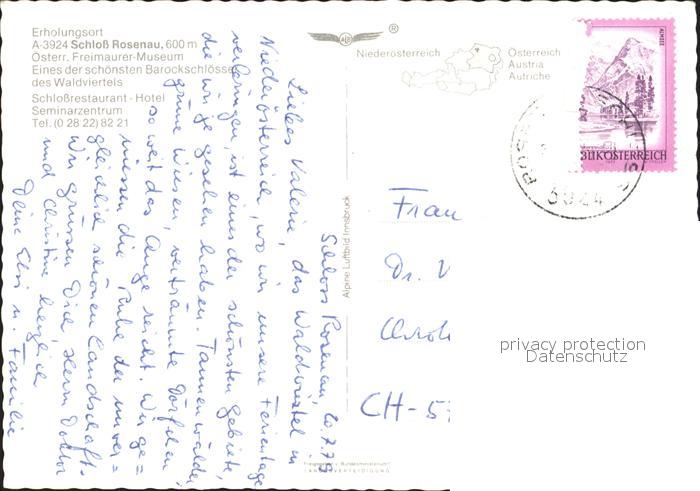 Erholungsort
A-3924 Schloß Rosenau, 600 m
Österr. Freimaurer-Museum
Eines der schönsten Barockschlösse
des Waldviertels
Schloßrestaurant - Hotel
Seminarzentrum
Tel. (0 28 22) 82 21
®
Niederösterreich
Österreich
Austria
Autriche
ALMSEE
REPUBLIK ÖSTERREICH
3924
Alpine Luftbild Innsbruck
Schloss Rosenau, 20.7.79
Liebes Valerie, das Waldviertel in
Niederösterreich, wo wir unsere Ferientage
verbringen, ist eines der schönsten Gebiete,
die wir je gesehen haben. Tannenwälder,
grüne Wiesen, verträumte Dörfchen,
so weit das Auge reicht. Wir ge=
niessen die Ruhe der unver=
gleichlich schönen Landschaft.
Wir grüssen Dich, Herrn Doktor
und Christine herzlich
Deine Elsi u. Familie
Frau
Dr. V
CH-5
privacy protection
Datenschutz
LANDESVERTEIDIGUNG